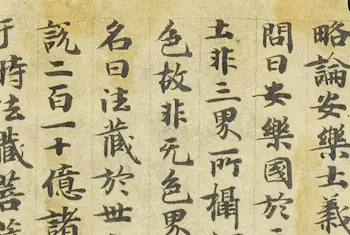 略論安樂土義
問曰安樂國於三
土非三界所攝
色故非无色界
名曰法藏於世
說二百一十億諸
于時法藏菩薩